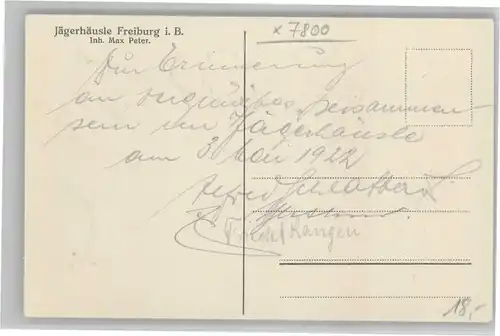 Jägerhäusle Freiburg i. B.
Inh. Max Peter.
x 7800
Zur Erinnerung
an vergnügtes Beisammen-
sein im Jägerhäusle
am 3 Mai 1922
Alfred
18,-